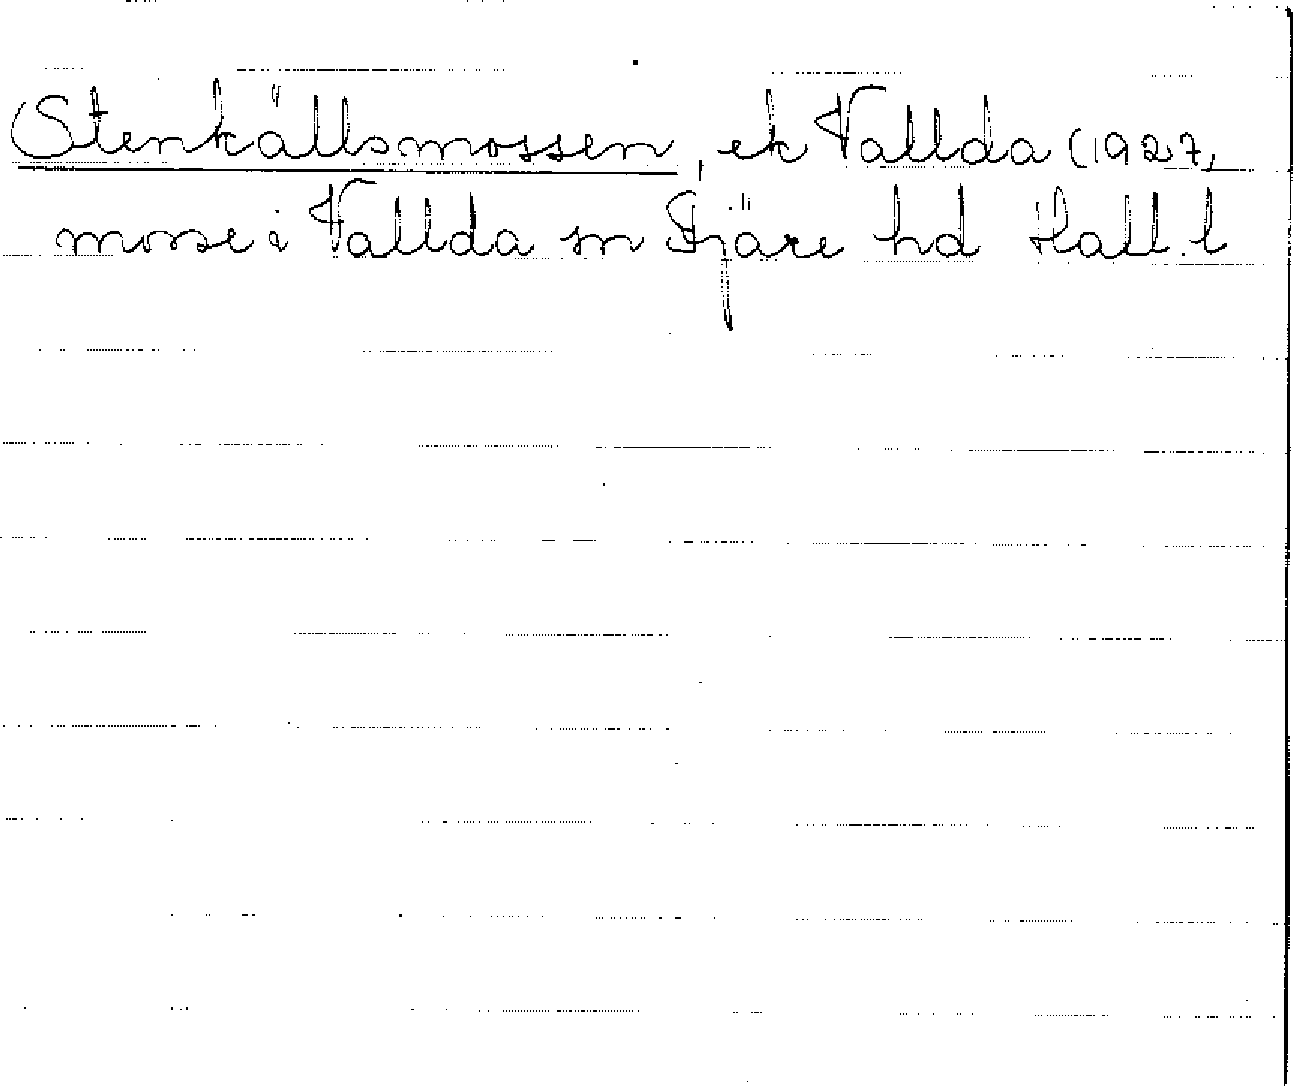 Stenkällsmossen, ek Vallda (1927,
mosse i Vallda sn Fjäre hd Hall. l